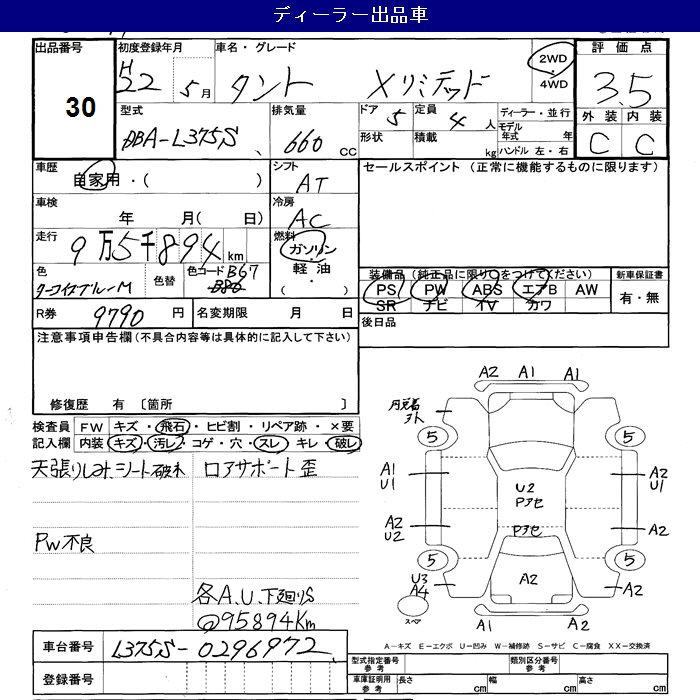 ディーラー出品車
出品番号 初度登録年月 車名・グレード 評価点
30 H22 5月 タント Xリミテッド 2WD 4WD 3.5
型式 排気量 ドア 5 定員 4 人 ディーラー・並行 外装 内装
DBA-L375S 660 CC 形状 積載 kg モデル年式 年 C C
ハンドル 左・右
車歴 シフト セールスポイント (正常に機能するものに限ります)
自家用・( ) AT
車検 冷房
年 月( 日) AC
走行 燃料
9万5千894 km ガソリン・
軽油・
( )
色 色替 色コード B67 装備品(純正品に限り○をつけてください) 新車保証書
ターコイズブルーM B86 PS PW ABS エアB AW 有・無
SR ナビ TV カワ
R券 9790 円 名変期限 月 日 後日品
注意事項申告欄(不具合内容等は具体的に記入して下さい)
修復歴 有 〔箇所 〕
検査員 FW キズ・飛石・ヒビ割・リペア跡・×要
記入欄 内装 キズ・汚レ・コゲ・穴・スレ・キレ・破レ
天張りしみ、シート破れ ロアサポート歪
PW不良
各A.U.下廻りS
@95894Km
車台番号 L375S-0296972
登録番号
A2 A1 A1
5 5
A1 A2
U1 U1
U2
Pアセ
A2 A2
U2
Pアセ
5 5
U3 A2 A2
A4
スペア
A1 A2
A-キズ E-エクボ U-凹み W-補修跡 S-サビ C-腐食 XX-交換済
型式指定番号 参考 類別区分番号 参考
車庫証明用 参考 長さ cm 幅 cm 高さ cm